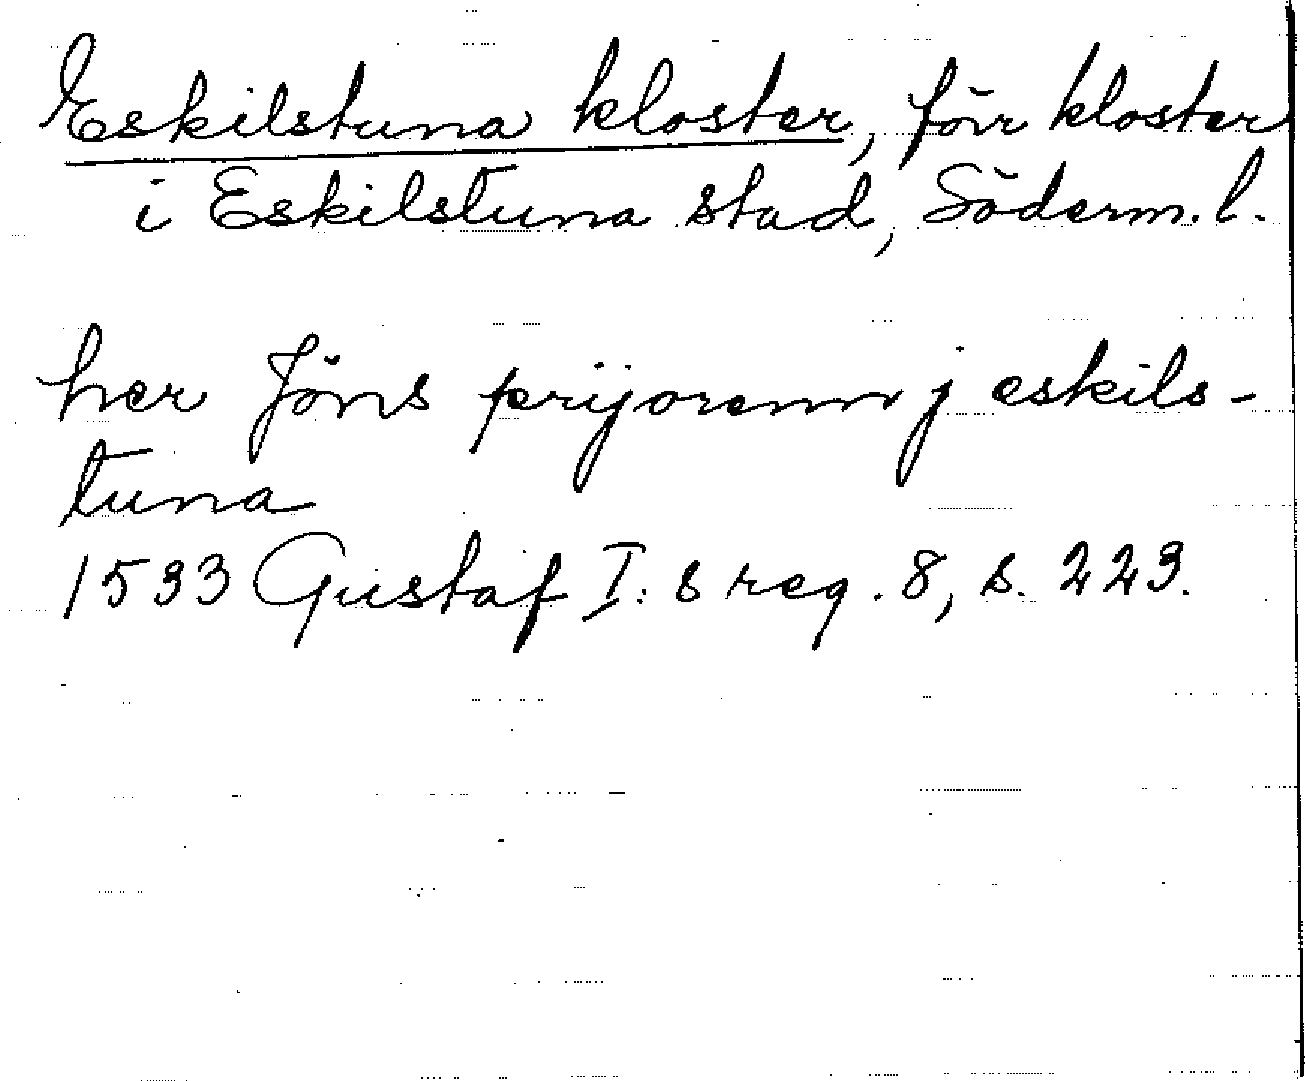 Eskilstuna kloster, förr kloster
i Eskilstuna stad, Söderm. l.
her Jöns prijorenn j eskils-
tuna
1533 Gustaf I: s reg. 8, s. 223.